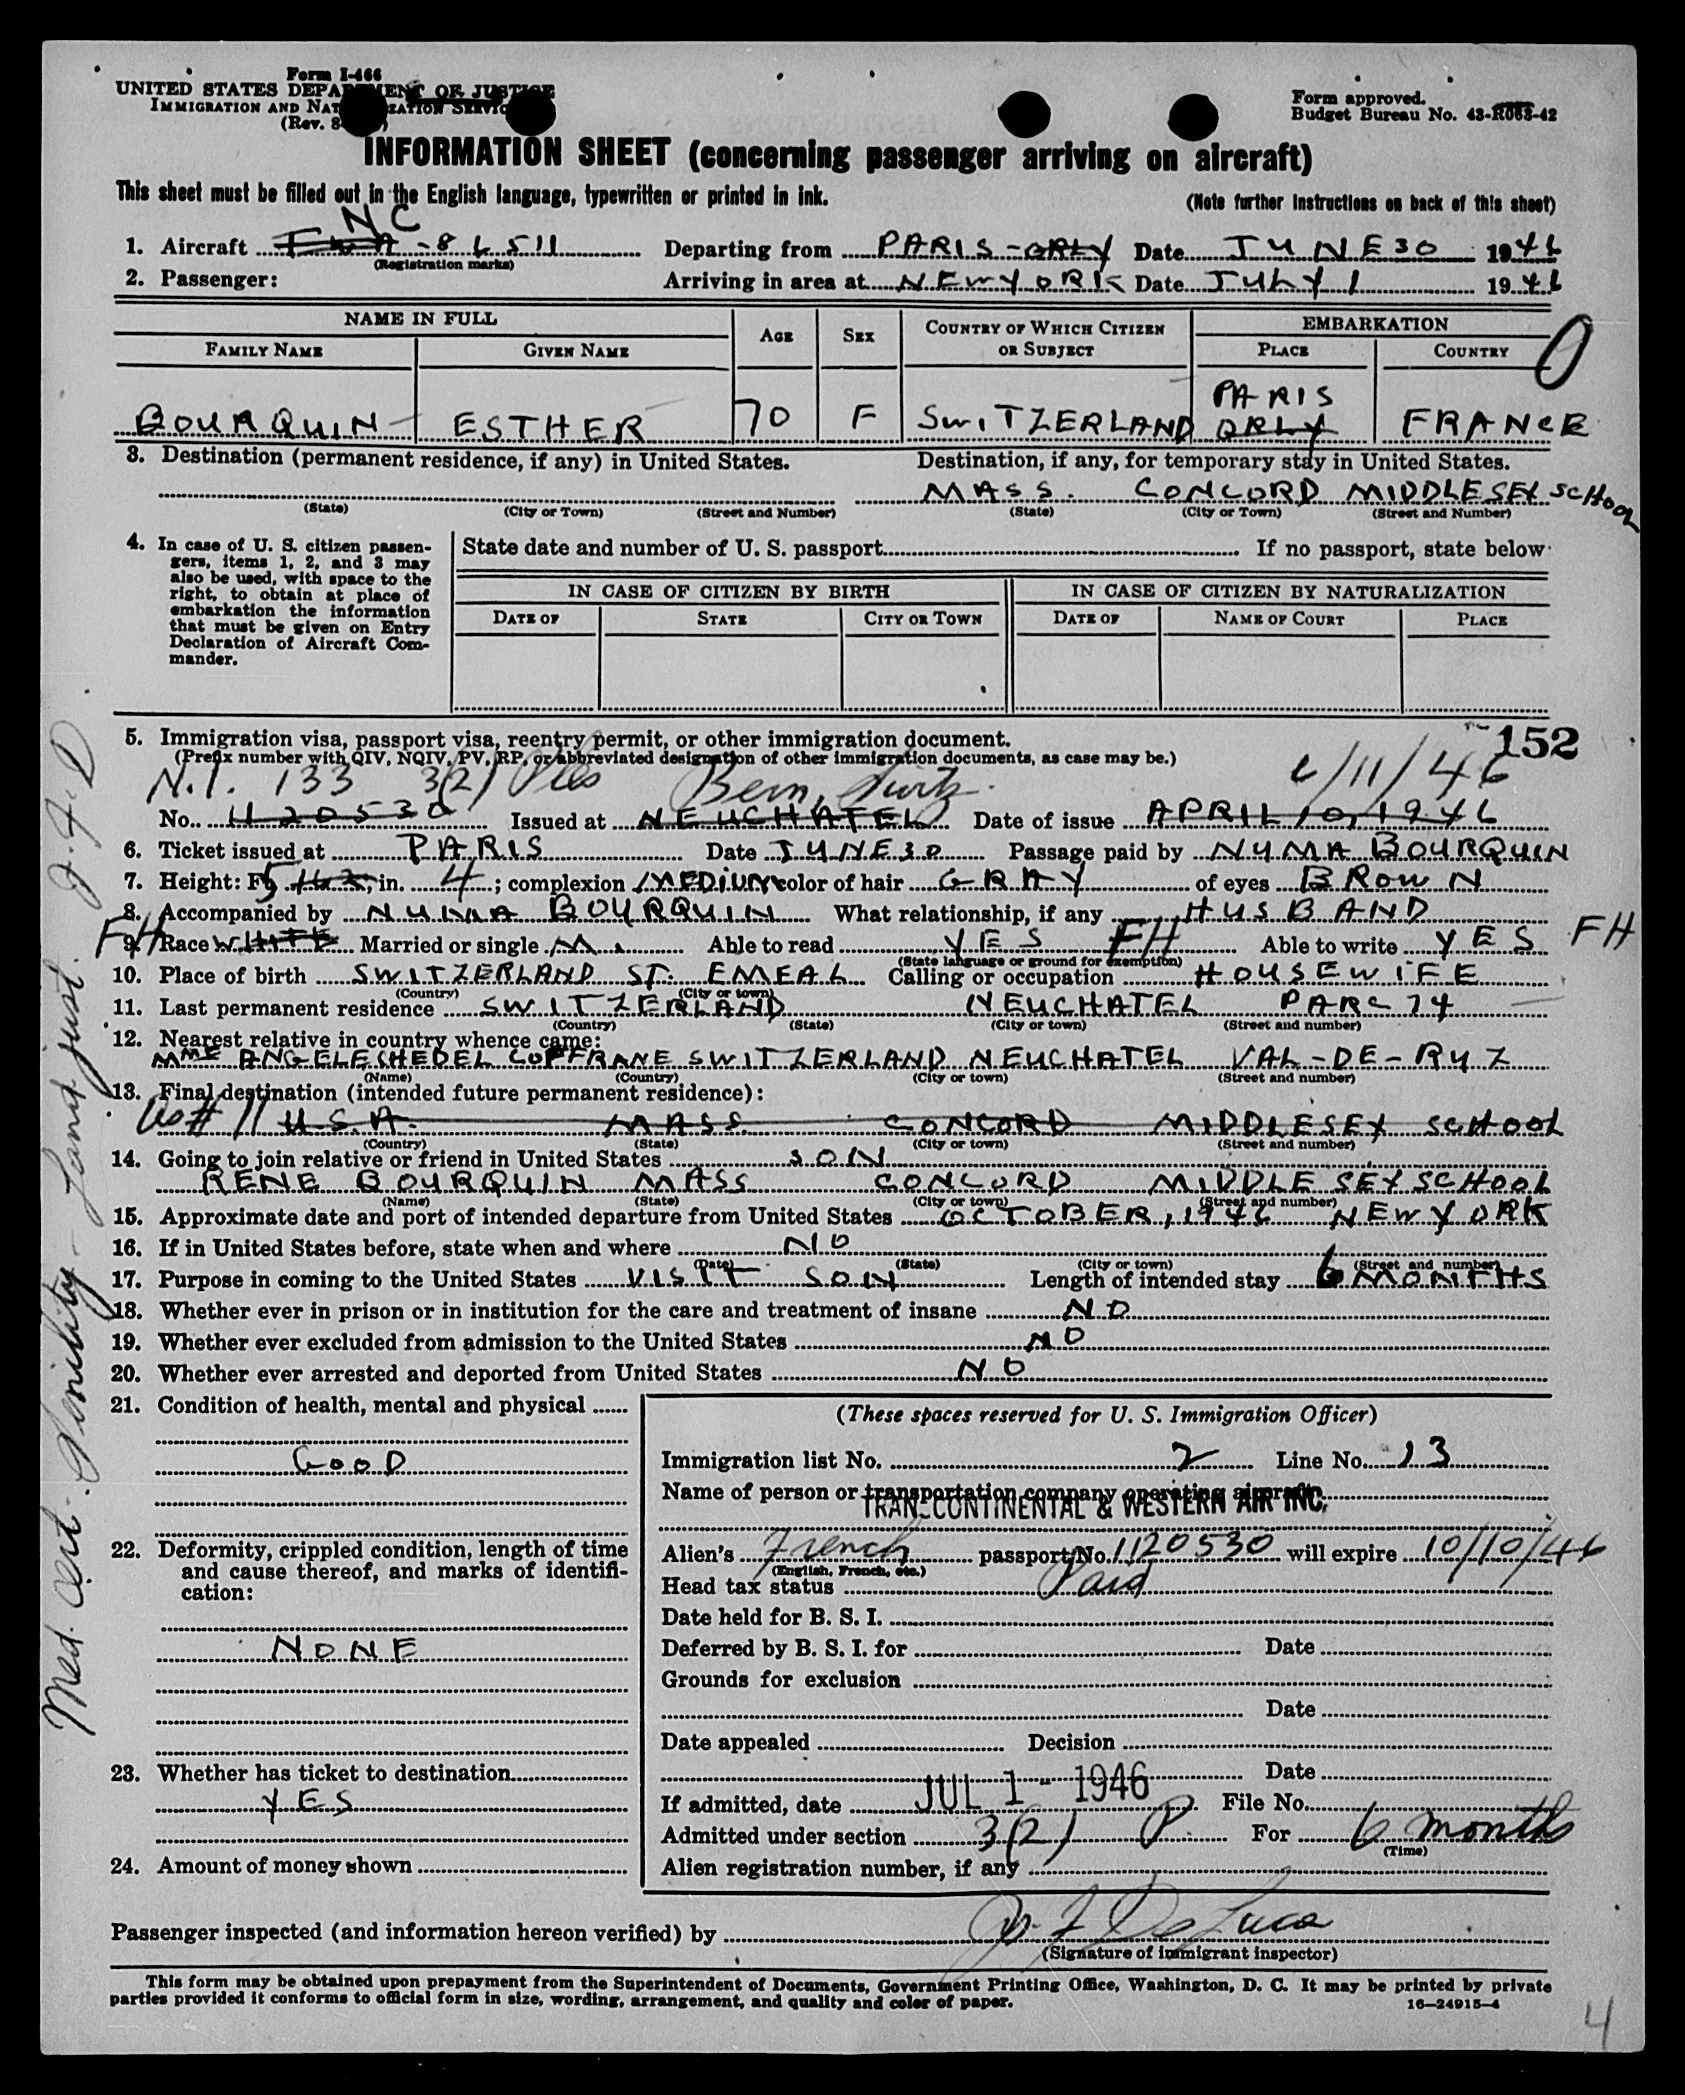 Form I-466
UNITED STATES DEPARTMENT OF JUSTICE
IMMIGRATION AND NATURALIZATION SERVICE
(Rev. 8-
Form approved.
Budget Bureau No. 43-R063-42
INFORMATION SHEET (concerning passenger arriving on aircraft)
This sheet must be filled out in the English language, typewritten or printed in ink.
(Note further instructions on back of this sheet)
NC
1. Aircraft TWA-86511 Departing from PARIS-ORLY Date JUNE 30 1946
(Registration marks)
2. Passenger: Arriving in area at NEW YORK Date JULY 1 1946
NAME IN FULL AGE SEX COUNTRY OF WHICH CITIZEN OR SUBJECT EMBARKATION
FAMILY NAME GIVEN NAME PLACE COUNTRY
0
PARIS
BOURQUIN ESTHER 70 F SWITZERLAND ORLY FRANCE
3. Destination (permanent residence, if any) in United States. Destination, if any, for temporary stay in United States.
MASS. CONCORD MIDDLESEX SCHOOL
(State) (City or Town) (Street and Number) (State) (City or Town) (Street and Number)
4. In case of U. S. citizen passen-
gers, items 1, 2, and 3 may
also be used, with space to the
right, to obtain at place of
embarkation the information
that must be given on Entry
Declaration of Aircraft Com-
mander.
State date and number of U. S. passport If no passport, state below
IN CASE OF CITIZEN BY BIRTH IN CASE OF CITIZEN BY NATURALIZATION
DATE OF STATE CITY OR TOWN DATE OF NAME OF COURT PLACE
152
5. Immigration visa, passport visa, reentry permit, or other immigration document.
(Prefix number with QIV, NQIV, PV, RP, or abbreviated designation of other immigration documents, as case may be.)
N.I. 133 3(2) Bern, Switz. 6/11/46
No. 1120530 Issued at NEUCHATEL Date of issue APRIL 10, 1946
6. Ticket issued at PARIS Date JUNE 30 Passage paid by NUMA BOURQUIN
7. Height: Ft. 5 in. 4; complexion MEDIUM color of hair GRAY of eyes BROWN
8. Accompanied by NUMA BOURQUIN What relationship, if any HUSBAND
FH 9. Race WHITE Married or single M. Able to read YES FH Able to write YES FH
(State language or ground for exemption)
10. Place of birth SWITZERLAND ST. EMEAL Calling or occupation HOUSEWIFE
(Country) (City or town)
11. Last permanent residence SWITZERLAND NEUCHATEL PARC 74
(Country) (State) (City or town) (Street and number)
12. Nearest relative in country whence came:
MME ANGELESHEDEL COFFRANE SWITZERLAND NEUCHATEL VAL-DE-RUZ
(Name) (Country) (City or town) (Street and number)
13. Final destination (intended future permanent residence):
As # 11 U.S.A. MASS. CONCORD MIDDLESEX SCHOOL
(Country) (State) (City or town) (Street and number)
14. Going to join relative or friend in United States SON
RENE BOURQUIN MASS CONCORD MIDDLESEX SCHOOL
(Name) (State) (City or town) (Street and number)
15. Approximate date and port of intended departure from United States OCTOBER, 1946 NEW YORK
16. If in United States before, state when and where NO
(Date) (State) (City or town) (Street and number)
17. Purpose in coming to the United States VISIT SON Length of intended stay 6 MONTHS
18. Whether ever in prison or in institution for the care and treatment of insane NO
19. Whether ever excluded from admission to the United States NO
20. Whether ever arrested and deported from United States NO
21. Condition of health, mental and physical
GOOD
22. Deformity, crippled condition, length of time
and cause thereof, and marks of identifi-
cation:
NONE
23. Whether has ticket to destination
YES
24. Amount of money shown
(These spaces reserved for U. S. Immigration Officer)
Immigration list No. 2 Line No. 13
Name of person or transportation company operating aircraft
TRANSCONTINENTAL & WESTERN AIR INC.
Alien's French passport No. 1120530 will expire 10/10/46
(English, French, etc.)
Head tax status Paid
Date held for B. S. I.
Deferred by B. S. I. for Date
Grounds for exclusion
Date
Date appealed Decision
Date
If admitted, date JUL 1 - 1946 File No.
Admitted under section 3(2) P. For 6 months
(Time)
Alien registration number, if any
Passenger inspected (and information hereon verified) by De Luca
(Signature of immigrant inspector)
This form may be obtained upon prepayment from the Superintendent of Documents, Government Printing Office, Washington, D. C. It may be printed by private
parties provided it conforms to official form in size, wording, arrangement, and quality and color of paper.
16—24915-4
4
Med. Cert. Senility - Land just. J.F.D.